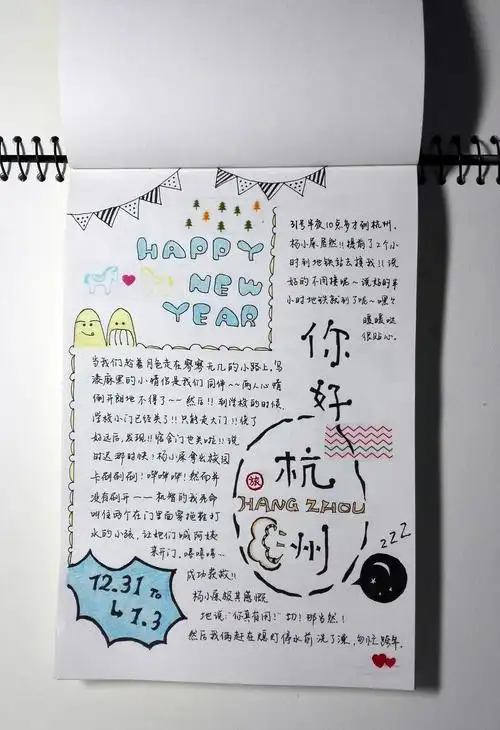 HAPPY
NEW
YEAR
31号半夜10点多才到杭州.
杨小屎居然!!提前了2个小
时到地铁站去接我!!说
好的不用接呢~说好的半
小时地铁就到了呢~嘿々
暖暖哒
很贴心.
当我们趁着月色走在寥寥无几的小路上,骂
漆黑的小情侣是我们同伴~~两人心情
倒开朗地不得了~~然后!!到学校的时候.
学校小门已经关了!!只能走大门!!绕了
好远后,发现!!宿舍门也关啦!!!说
时迟那时快!杨小屎拿出校园
卡刷刷刷!哗哗哗!然而并
没有刷开——机智的我亮命
叫住两个在门里面穿拖鞋打
水的小孩,让她们喊阿姨
来开门.嘻嘻嘻~
成功获救!!
杨小屎极其感慨
地说:"你真有用!"切!那当然!
然后我俩赶在熄灯停水前洗了澡,匆忙跨年.
你
好
杭
旅
HANG ZHOU
州
zzz
12.31 To
1.3